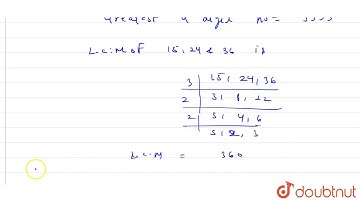 4 digit no =
L.C.M of 15, 24 & 36 is
3 | 15, 24, 36
2 | 5, 8, 12
2 | 5, 4, 6
5, 2, 3
L.C.M = 360
doubtnut